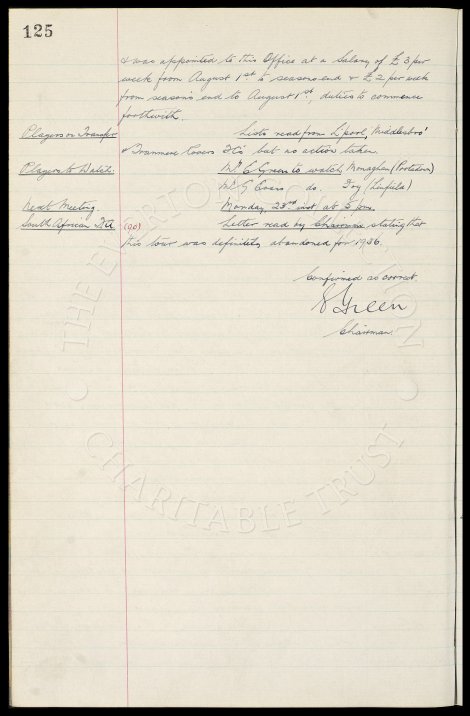 125
& was appointed to this Office at a Salary of £3 per
week from August 1st to seasons end & £2 per week
from season's end to August 1st, duties to commence
forthwith.
Players on Transfer Lists read from L'pool, Middlesbro'
& Tranmere Rovers F.Cs but no action taken.
Players to Watch: Mr. C. Green to watch, Monaghan (Portadown)
Mr. G Evans - do. Foy (Linfield)
Next Meeting Monday, 23rd inst at 5 pm.
South African (90) Letter read by Chairman stating that
this tour was definitely abandoned for 1936.
Confirmed as correct.
Green
Chairman.
THE EVERTON
CHARITABLE TRUST